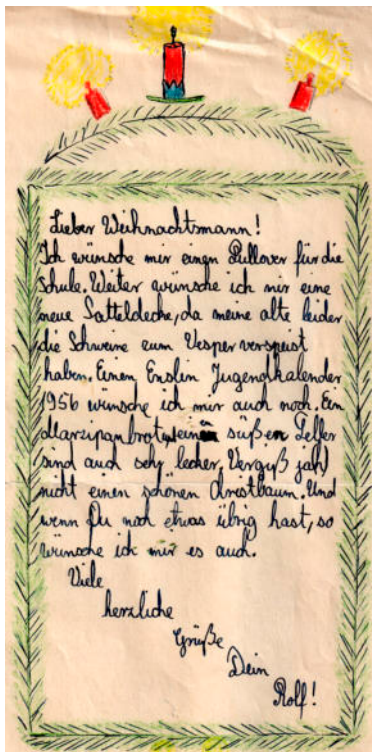 Lieber Weihnachtsmann!
Ich wünsche mir einen Pullover für die
Schule. Weiter wünsche ich mir eine
neue Satteldecke, da meine alte leider
die Schweine zum Vesper verspeist
haben. Einen Enslin Jugendkalender
1956 wünsche ich mir auch noch. Ein
Marzipanbrot, einen süßen Teller
sind auch sehr lecker. Vergiß ja
nicht einen schönen Christbaum. Und
wenn Du noch etwas übrig hast, so
wünsche ich mir es auch.
Viele
herzliche
Grüße
Dein
Rolf!